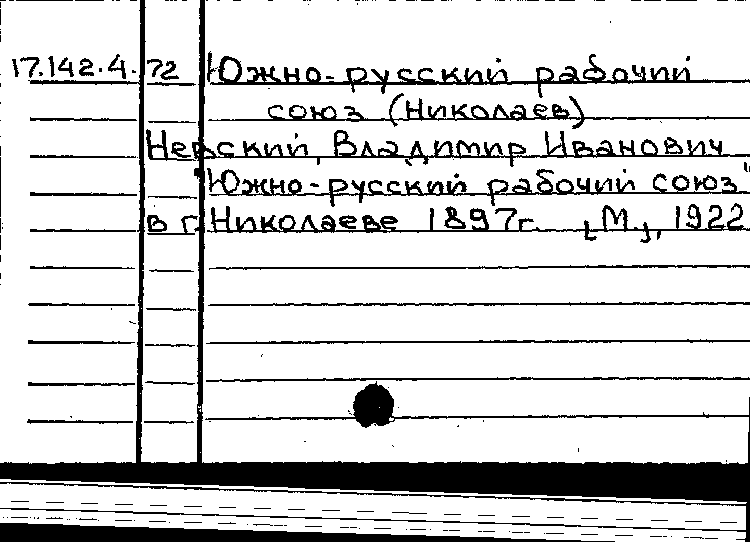 17.142.4.72 Южно-русский рабочий
союз (Николаев)
Невский, Владимир Иванович
"Южно-русский рабочий союз"
в г. Николаеве 1897г. [М.], 1922